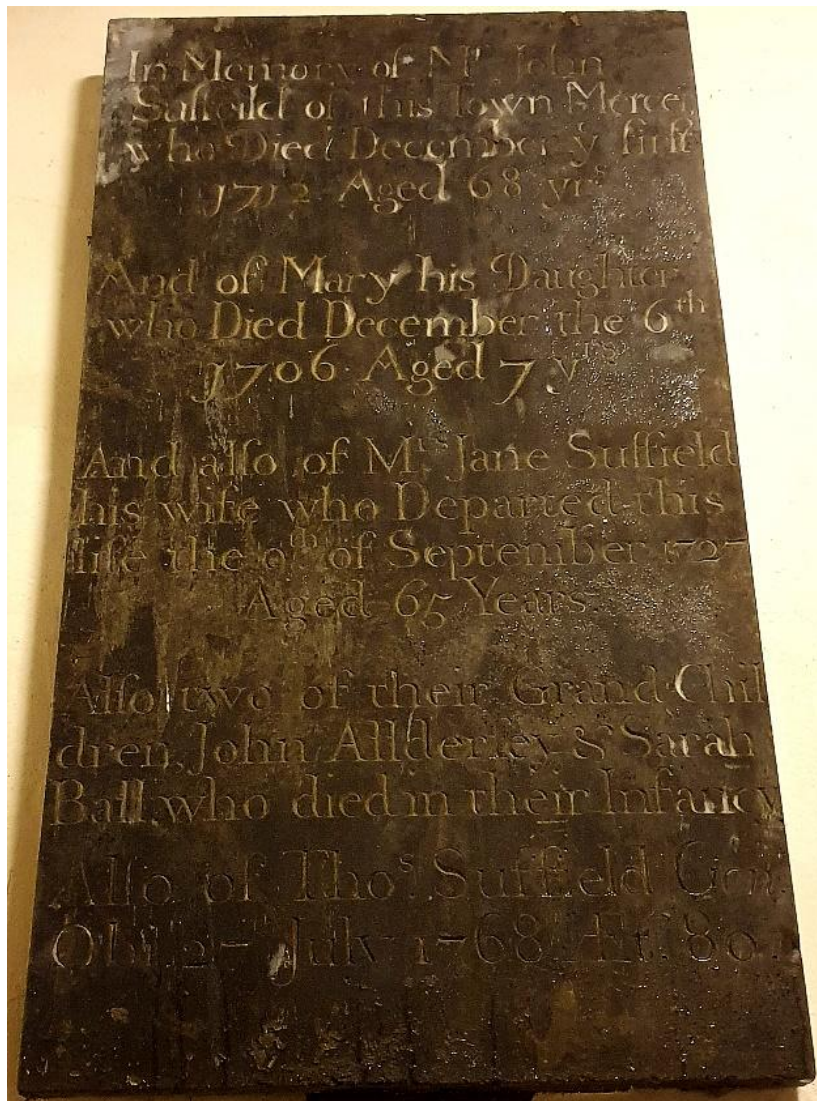 In Memory of Mr. John
Suffeild of this Town Mercer
who Died December ye first
1712 Aged 68 yrs
And of Mary his Daughter
who Died December the 6th
1706 Aged 7 yrs
And also of Mrs Jane Suffield
his wife who Departed this
life the 9th of September 1727
Aged 65 Years.
Also two of their Grand Chil
dren John Allderley & Sarah
Ball who died in their Infancy
Also of Thos. Suffield Gen.
July 1768 Æt. 80.